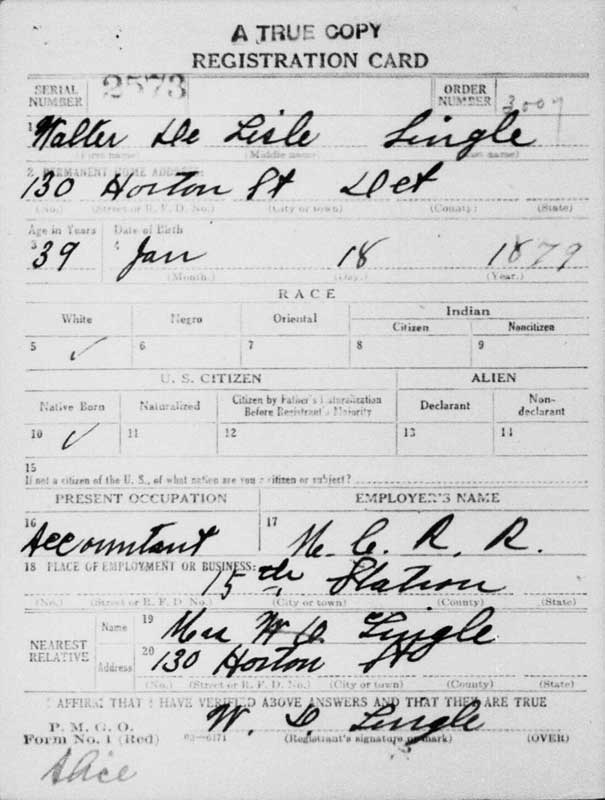 A TRUE COPY
REGISTRATION CARD
SERIAL NUMBER 2573 ORDER NUMBER 3007
1 Walter De Lisle Lingle
(First name) (Middle name) (Last name)
2 PERMANENT HOME ADDRESS:
130 Horton St Det
(No.) (Street or R. F. D. No.) (City or town) (County) (State)
Age in Years Date of Birth
3 39 4 Jan 18 1879
(Month.) (Day.) (Year.)
RACE
White Negro Oriental Indian
Citizen Noncitizen
5 ✓ 6 7 8 9
U. S. CITIZEN ALIEN
Native Born Naturalized Citizen by Father's Naturalization Before Registrant's Majority Declarant Non-declarant
10 ✓ 11 12 13 14
15
If not a citizen of the U. S., of what nation are you a citizen or subject?
PRESENT OCCUPATION EMPLOYER'S NAME
16 Accountant 17 M. C. R. R.
18 PLACE OF EMPLOYMENT OR BUSINESS:
15th Station
(No.) (Street or R. F. D. No.) (City or town) (County) (State)
NEAREST RELATIVE Name 19 Mrs W D Lingle
Address 20 130 Horton St
(No.) (Street or R. F. D. No.) (City or town) (County) (State)
I AFFIRM THAT I HAVE VERIFIED ABOVE ANSWERS AND THAT THEY ARE TRUE
P. M. G. O.
Form No. 1 (Red) 03—6171 W. D. Lingle
(Registrant's signature or mark) (OVER)
Alice